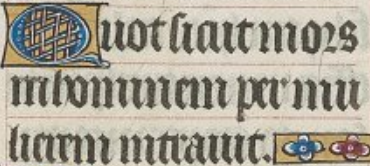 Quot sicut mors
in hominem per mu
lierem intrauit.